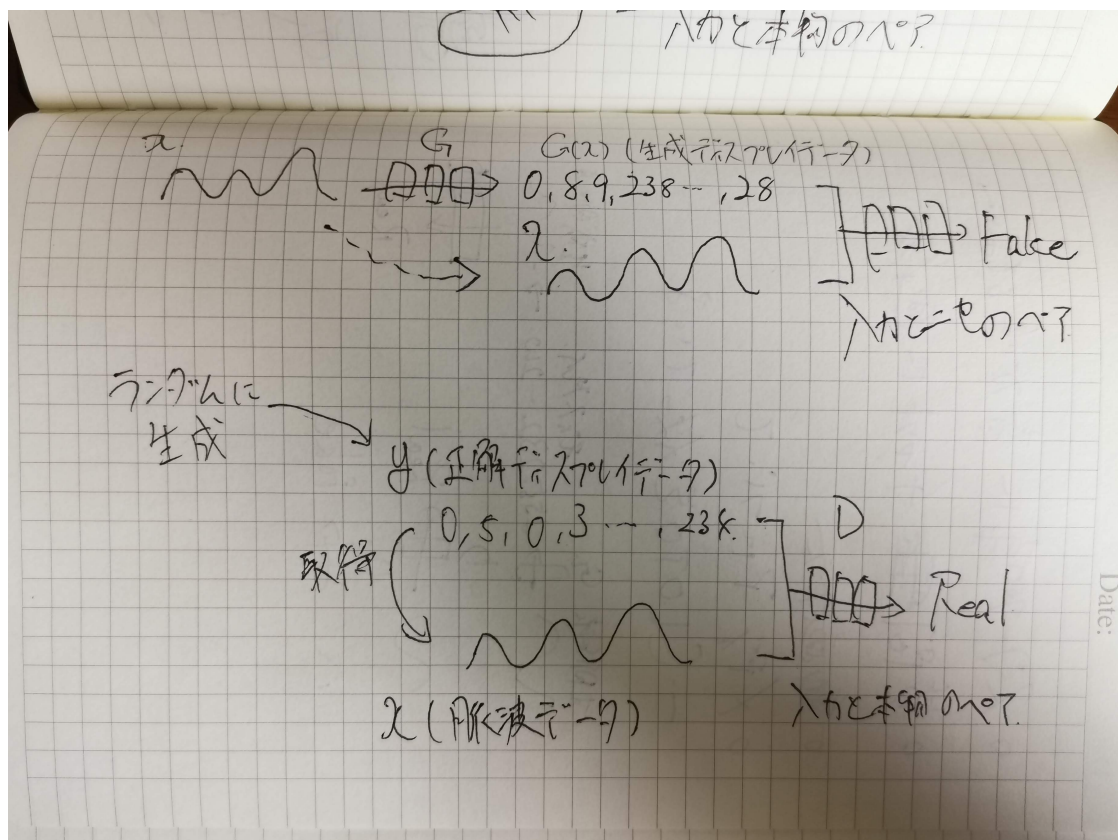 入力と本物のペア
x.
G
G(x) (生成ディスプレイデータ)
0, 8, 9, 238 … , 28
x.
Fake
入力とニセのペア
ランダムに
生成
y (正解ディスプレイデータ)
0, 5, 0, 3 … , 238.
D
取得
Real
x (脈波データ)
入力と本物のペア
Date: